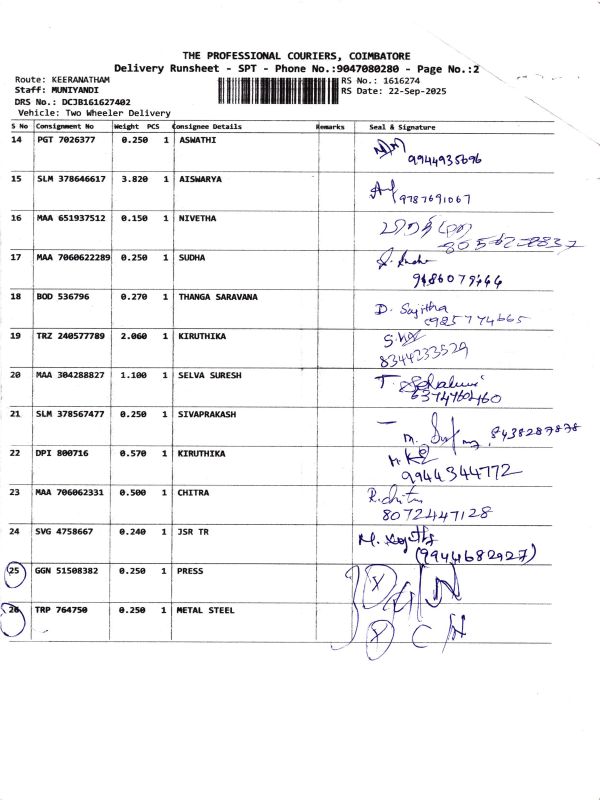 THE PROFESSIONAL COURIERS, COIMBATORE
Delivery Runsheet - SPT - Phone No.:9047080280 - Page No.:2
Route: KEERANATHAM RS No.: 1616274
Staff: MUNIYANDI RS Date: 22-Sep-2025
DRS No.: DCJB161627402
Vehicle: Two Wheeler Delivery
S No Consignment No Weight PCS Consignee Details Remarks Seal & Signature
14 PGT 7026377 0.250 1 ASWATHI
9944935696
15 SLM 378646617 3.820 1 AISWARYA
9787691067
16 MAA 651937512 0.150 1 NIVETHA
17 MAA 7060622289 0.250 1 SUDHA
18 BOD 536796 0.270 1 THANGA SARAVANA
D. Sajitha
9985774665
19 TRZ 240577789 2.060 1 KIRUTHIKA
8344233529
20 MAA 304288827 1.100 1 SELVA SURESH
6374760460
21 SLM 378567477 0.250 1 SIVAPRAKASH
8438287878
22 DPI 800716 0.570 1 KIRUTHIKA
9944344772
23 MAA 706062331 0.500 1 CHITRA
R.chitra
8072447128
24 SVG 4758667 0.240 1 JSR TR
(9944682927)
25 GGN 51508382 0.250 1 PRESS
X
26 TRP 764750 0.250 1 METAL STEEL
X C/N